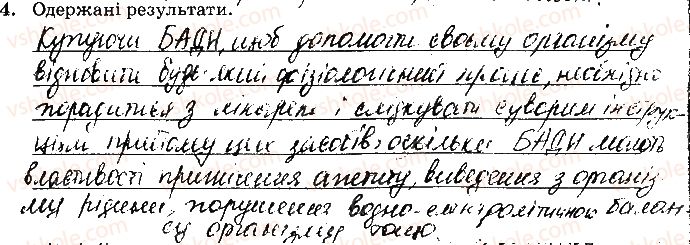 4. Одержані результати.
Купуючи БАДН, щоб допомогти своєму організму
відновити будь-який фізіологічний процес, необхідно
порадитися з лікарем і слідкувати суворим інструк-
ціям прийому цих засобів, оскільки БАДН мають
властивості пригнічення апетиту, виведення з організ
му рідини, порушення водно-електролітичного балан
су організму тощо.